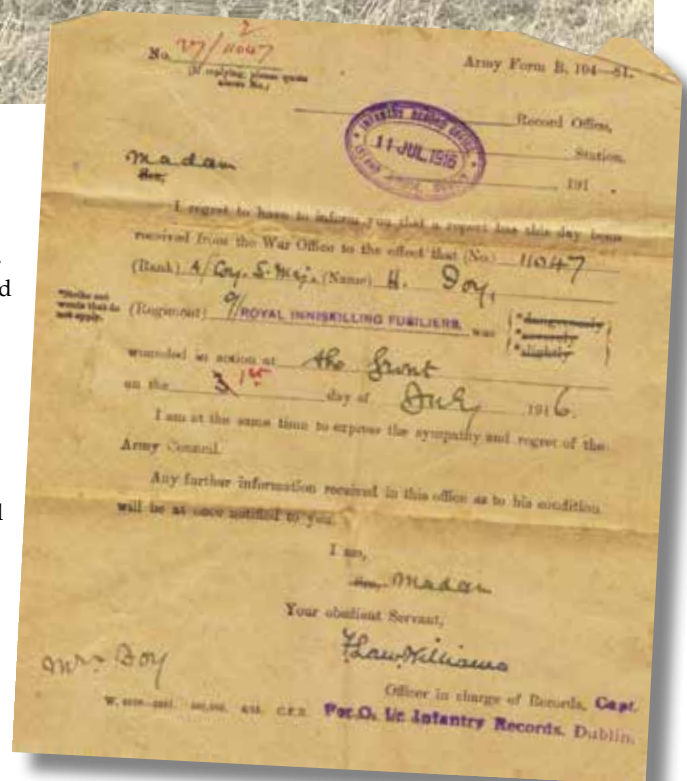 2
No. 27/11047
(If replying, please quote
above No.)
Army Form B. 104—81.
Record Office,
Station.
191 .
INFANTRY RECORD OFFICE
11 JUL 1916
Madam
Sir,
I regret to have to inform you that a report has this day been
received from the War Office to the effect that (No.) 11047
(Rank) A/Coy. S. Maj. (Name) H. Doy,
*Strike out
words that do
not apply.
(Regiment) 9/ROYAL INNISKILLING FUSILIERS, was
*dangerously
*severely
*slightly
wounded in action at the front
on the 1st day of July 1916.
I am at the same time to express the sympathy and regret of the
Army Council.
Any further information received in this office as to his condition
will be at once notified to you.
I am,
Sir, Madam
Your obedient Servant,
Law Williams
Officer in charge of Records. Capt.
Mrs Doy
For O. i/c Infantry Records, Dublin.
d
l